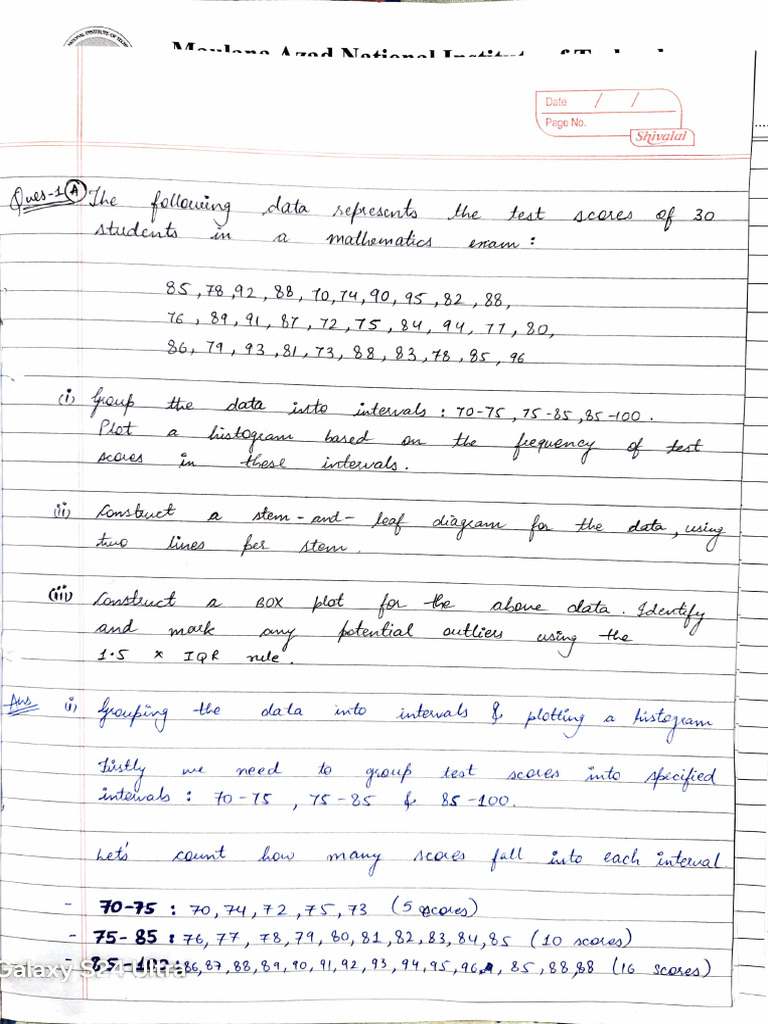 NATIONAL INSTITUTE OF TECH
Maulana Azad National Institute of Technology
Date / /
Page No.
Shivalal
Ques-1 (A) The following data represents the test scores of 30
students in a mathematics exam :
85, 78, 92, 88, 70, 74, 90, 95, 82, 88,
76, 89, 91, 87, 72, 75, 84, 94, 77, 80,
86, 79, 93, 81, 73, 88, 83, 78, 85, 96
(i) Group the data into intervals : 70-75, 75-85, 85-100.
Plot a histogram based on the frequency of test
scores in these intervals.
(ii) Construct a stem-and-leaf diagram for the data, using
two lines per stem.
(iii) Construct a BOX plot for the above data. Identify
and mark any potential outliers using the
1.5 x IQR rule.
Ans (i) Grouping the data into intervals & plotting a histogram
Firstly we need to group test scores into specified
intervals : 70-75, 75-85 & 85-100.
Let's count how many scores fall into each interval
- 70-75 : 70, 74, 72, 75, 73 (5 scores)
- 75-85 : 76, 77, 78, 79, 80, 81, 82, 83, 84, 85 (10 scores)
- 85-100 : 86, 87, 88, 89, 90, 91, 92, 93, 94, 95, 96, 85, 88, 88 (16 scores)
Galaxy S24 Ultra